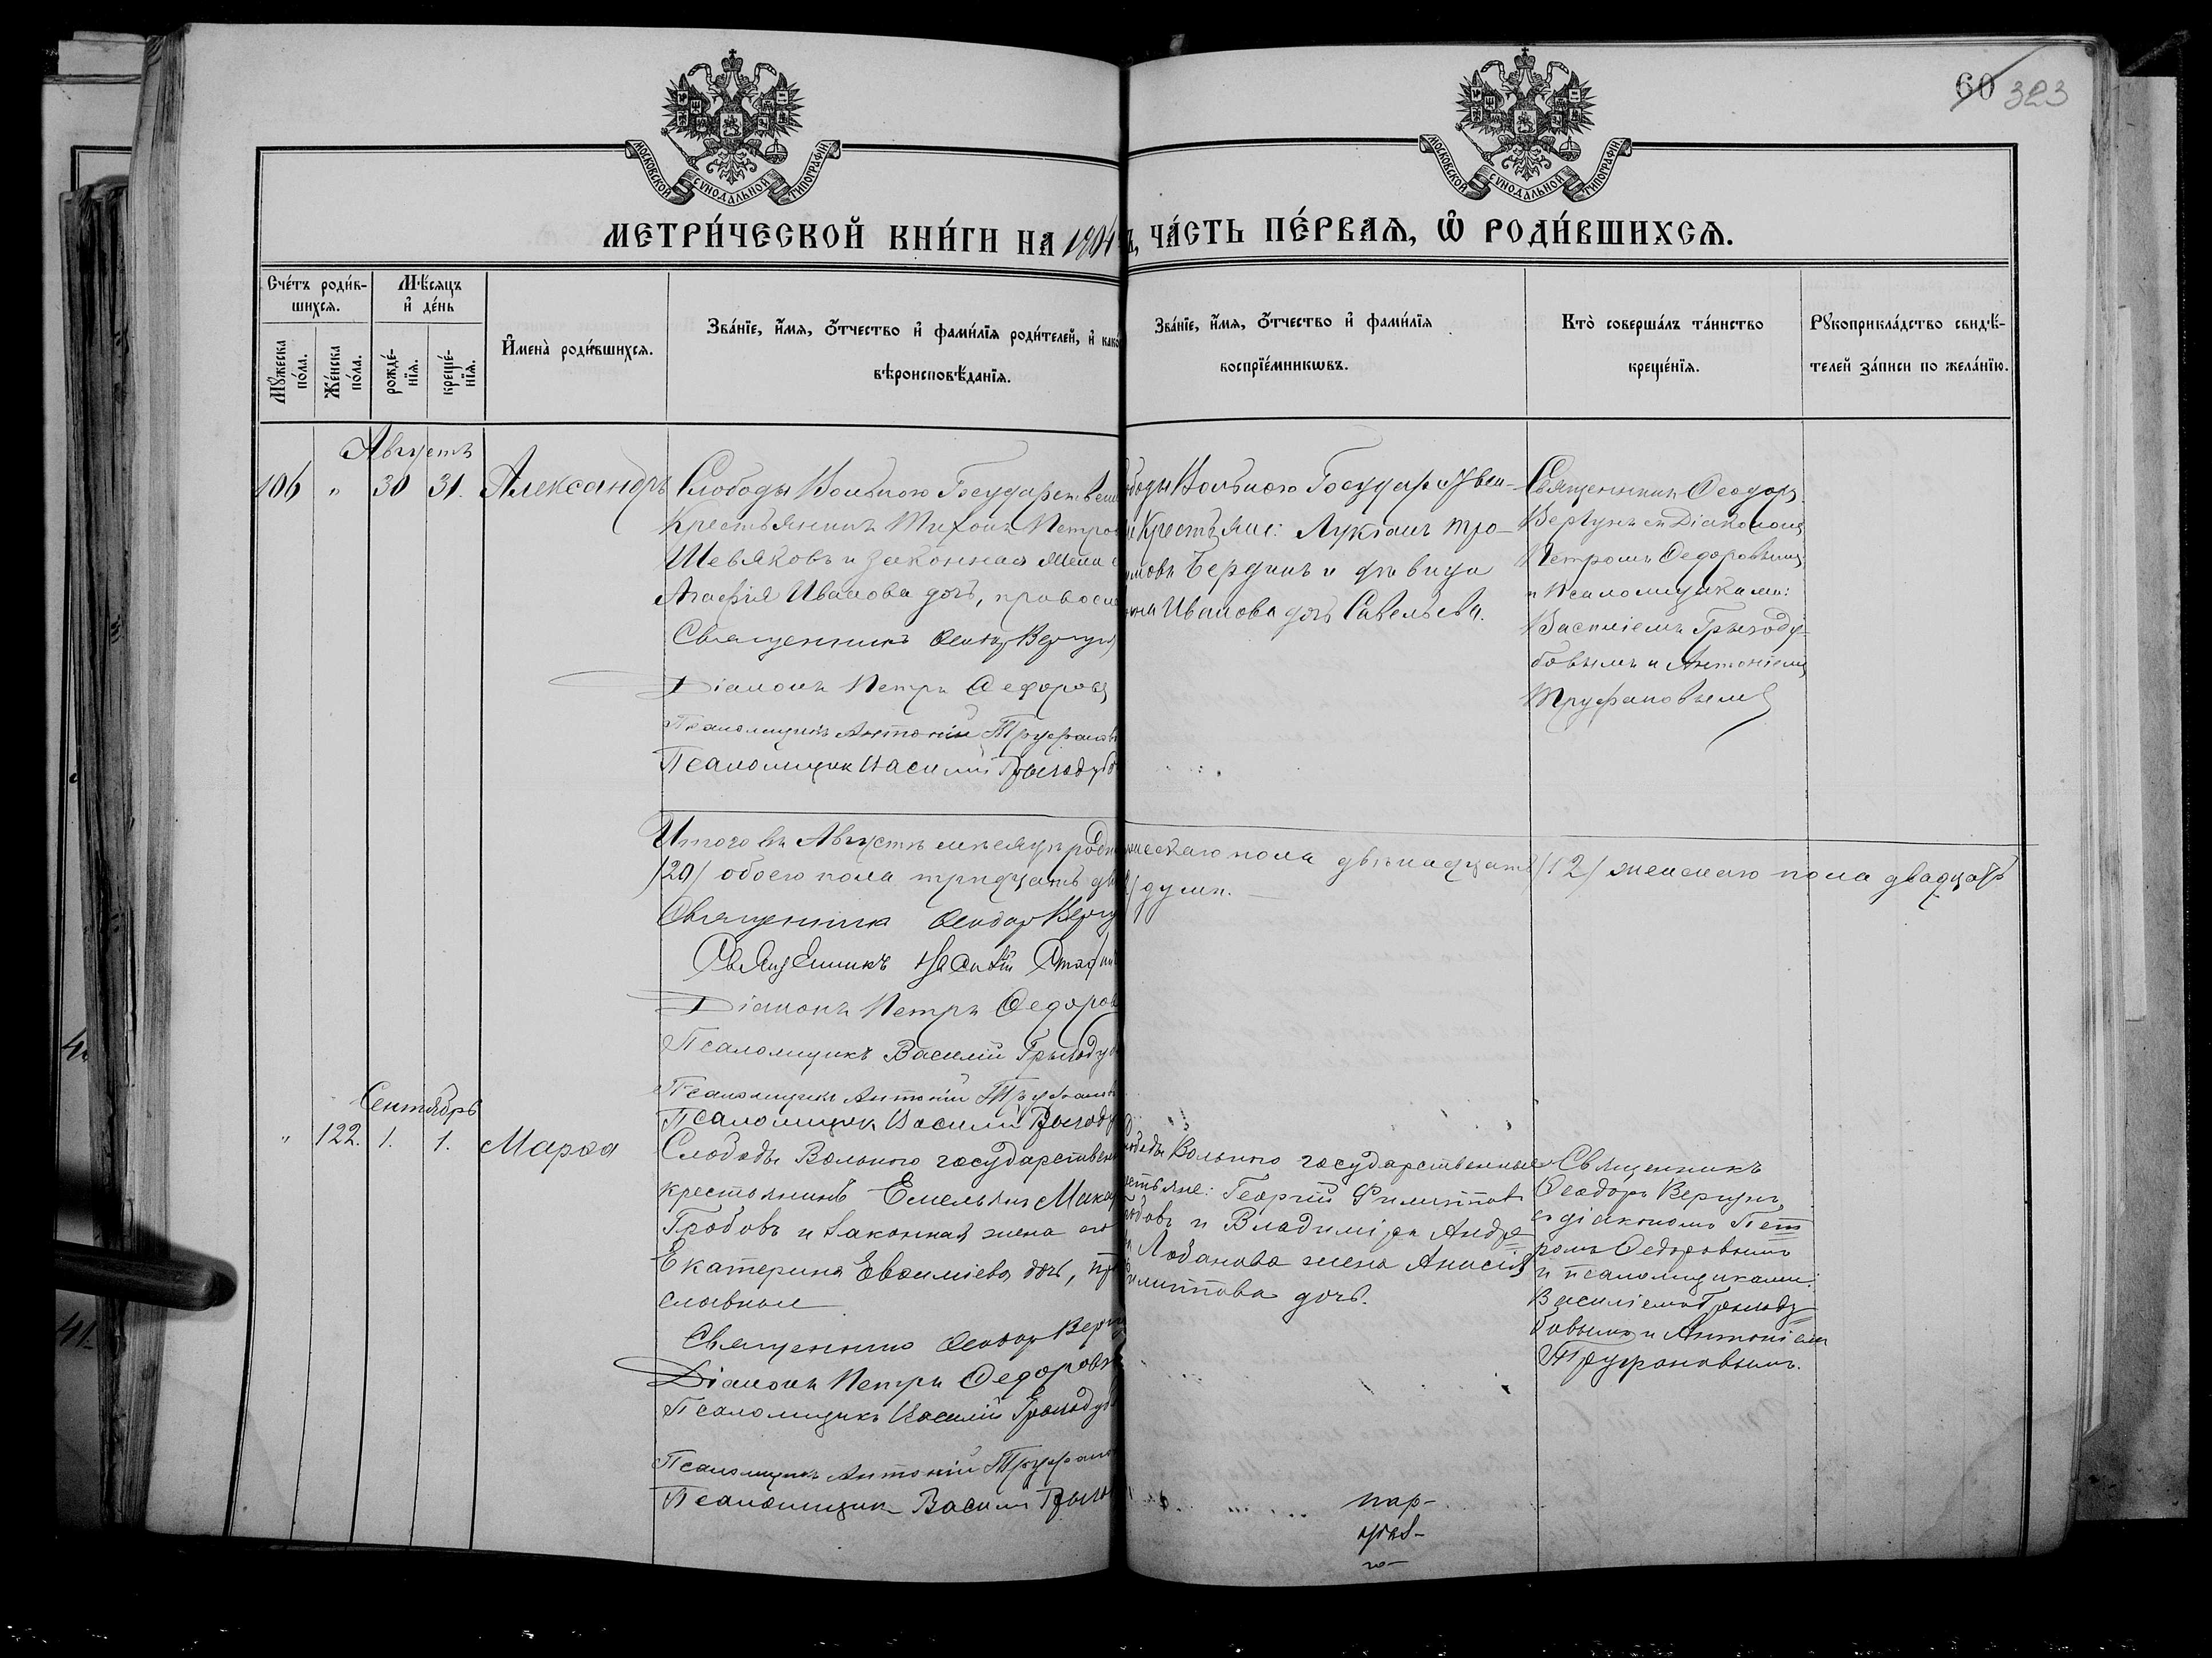 60 323
МОСКОВСКОЙ СУНОДАЛЬНОЙ ТИПОГРАФІИ
МОСКОВСКОЙ СУНОДАЛЬНОЙ ТИПОГРАФІИ
МЕТРИ́ЧЕСКОЙ КНИ́ГИ НА 1904
ЧА́СТЬ ПЕ́РВАЯ, Ѽ РОДИ́ВШИХСЯ.
Сче́тъ роди́в-
шихся.
Мѣ́сяцъ
и҆ де́нь
Мꙋ́жеска
по́ла.
Же́нска
по́ла.
рожде́-
нїя.
креще́-
нїя.
И҆мена̀ роди́вшихся.
Зва́нїе, и҆́мя, ѻ҆́тчество и҆ фами́лїя роди́телей, и҆ како
вѣроисповѣ́данїя.
Зва́нїе, и҆́мя, ѻ҆́тчество и҆ фами́лїя
воспрїе́мникѡвъ.
Кто̀ соверша́лъ та́инство
креще́нїя.
Рꙋкоприкла́дство свидѣ́-
телей за́писи по жела́нїю.
Августъ
106 " 30 31. Александръ
Слободы Вольного Государствен
Крестьянинъ Тихонъ Петров
Шевяковъ и законная жена е
Агафія Иванова дочь, правосл
Священникъ Ѳеодор Вергун
Діаконъ Петръ Ѳедоровъ
Псаломщикъ Антоній Труфановъ
Псаломщик Василий Грызодуб
ободы Вольного Государствен-
и Крестьяне: Лукіанъ Тро-
имовъ Бердинъ и дѣвица
Иванова дочь Савельева.
Священникъ Ѳеодоръ
Вергунъ съ Діакономъ
Петромъ Ѳедоровымъ
и Псаломщиками:
Василіемъ Грызоду-
бовымъ и Антоніемъ
Труфановымъ
Итого въ Августѣ мѣсяцѣ роди
мужескаго пола двѣнадцать /12/ женскаго пола двадцать
/20/ обоего пола тридцать дв
/ душъ.
Священникъ Ѳеодор Вергу
Священникъ
Діаконъ Петръ Ѳедоров
Псаломщикъ Василій Грызоду
Псаломщикъ Антоній Труфанов
Псаломщик Василий Грызоду
Сентябрь
" 122. 1. 1. Марѳа
Слободы Вольного государствен
крестьянинъ Емельянъ Мака
Гробовъ и законная жена его
Екатерина Евѳиміева дочь, пр
славные
Священникъ Ѳеодор Вергу
Діаконъ Петръ Ѳедоровъ
Псаломщикъ Василій Грызодуб
Псаломщикъ Антоній Труфан
Псаломщик Василий Грызо
ободы Вольного государственные
естьяне: Георгій Филиппов
бовъ и Владиміра Андре
Лобанова жена Анисія
илиппова дочь.
Священникъ
Ѳеодоръ Вергунъ
съ діакономъ Пет
ромъ Ѳедоровымъ
и псаломщиками:
Василіемъ Грызоду
бовымъ и Антоніемъ
Труфановымъ.